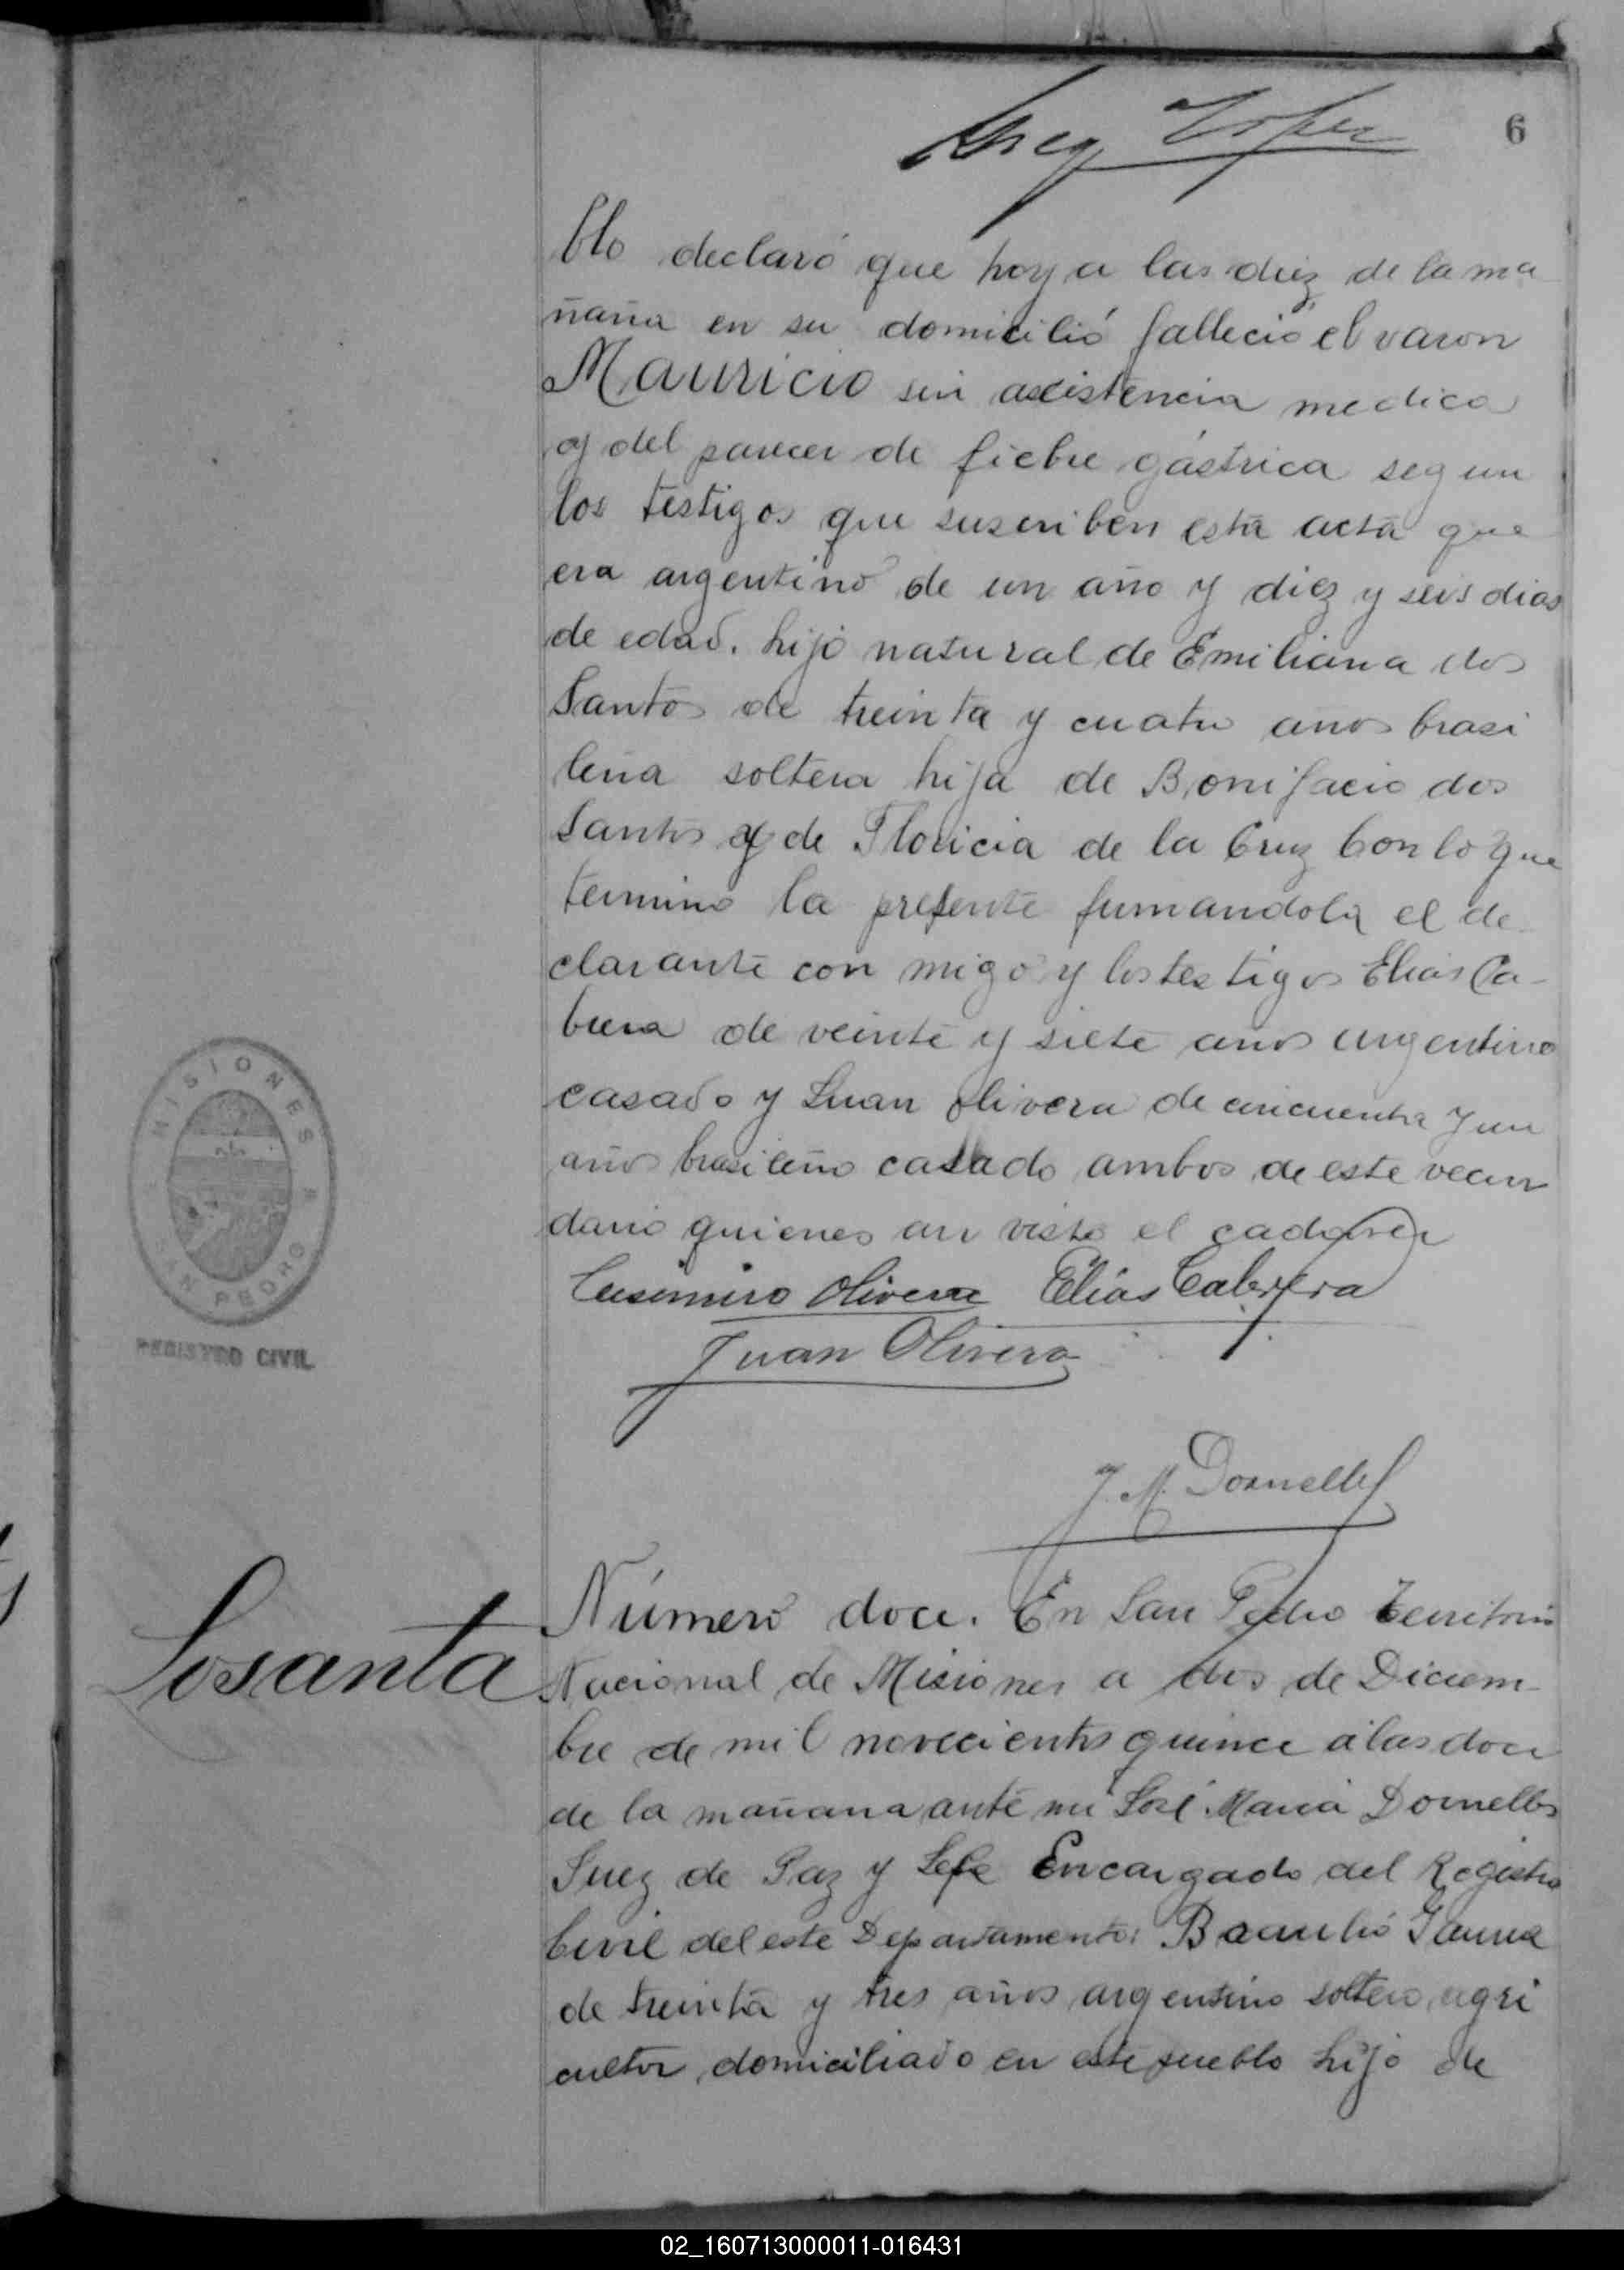 6
blo declaró que hoy a las diez de la ma
ñana en su domicilió falleció el varon
Mauricio sin asistencia medica
y del parecer de fiebre gástrica segun
los testigos que suscriben esta acta que
era argentino de un año y diez y seis dias
de edad. hijo natural de Emiliana dos
Santos de treinta y cuatro anos brasi
leña soltera hija de Bonifacio dos
Santos y de Floricia de la Cruz Con lo que
termino la presente firmandola el de
clarante con migo y los testigos Elias Ca-
brera de veinte y siete años argentino
casado y Juan Olivera de cincuenta y un
años brasileño casado ambos de este vecin
dario quienes an visto el cadaver
Casimiro Olivera Elías Cabrera
Juan Olivera
J. M. Dornelles
MISIONES
SAN PEDRO
REGISTRO CIVIL
Losanta
Número doce. En San Pedro Territorio
Nacional de Misiones a dos de Diciem-
bre de mil novecientos quince a las doce
de la mañana ante mi José Maria Dornelles
Juez de Paz y Jefe Encargado del Registro
Civil del este Departamento: Braulio
de treinta y tres años argentino soltero, agri
cultor, domiciliado en este pueblo hijo de
02_160713000011-016431